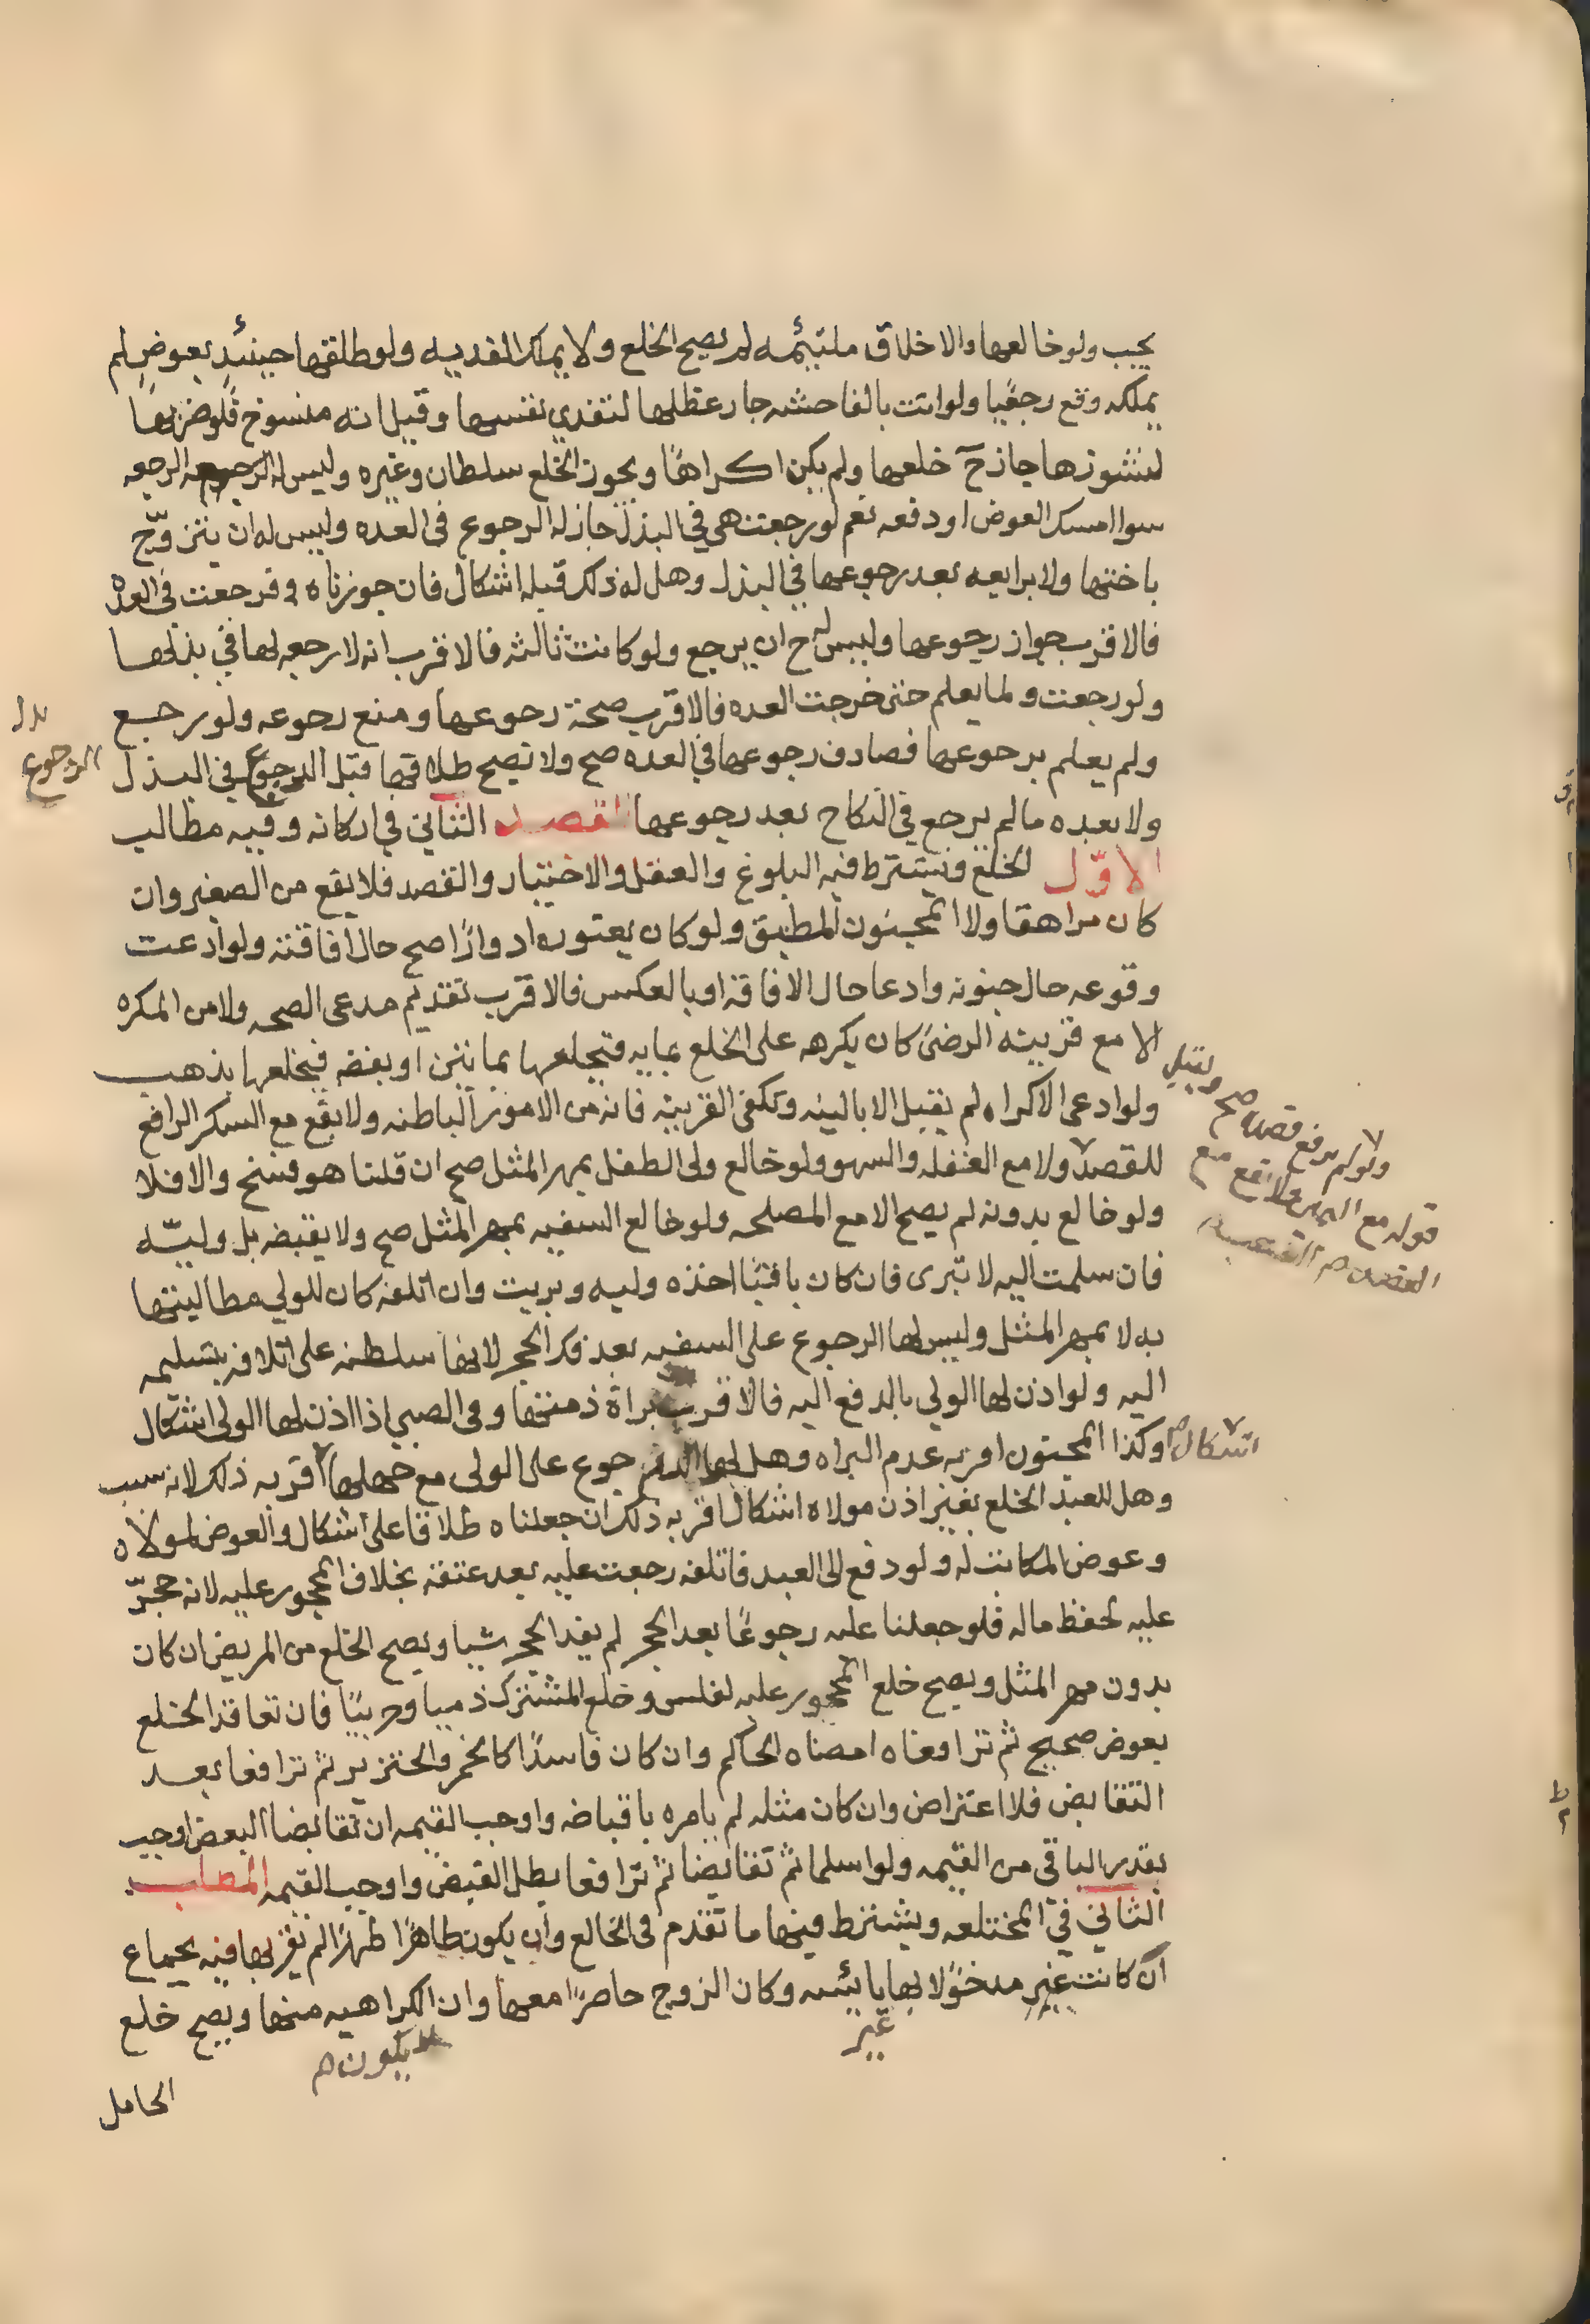 يجب ولو خالعها والاخلاق ملتئمه لم يصح الخلع ولا يملك الفديه ولو طلقها حينئذ بعوض لم
يملكه وقع رجعيا ولو اتت بالفاحشه جاز عظلها لتفدي نفسها وقيل انه منسوخ فلو ضربها
لنشوزها جاز ح خلعها ولم يكن اكراها ويجوز الخلع سلطان وغيره وليس له الرجعه
سوا امسك العوض او دفعه نعم لو رجعت هي في البذل جاز له الرجوع في العده وليس له ان يتزوّج
باختها ولا برابعه بعد رجوعها في البذل وهل له ذلك قبله اشكال فان جوزناه فرجعت في العده
فالاقرب جواز رجوعها وليس له ح ان يرجع ولو كانت ثالثه فالاقرب انه لا رجعه لها في بذلها
ولو رجعت ولما يعلم حتى خرجت العده فالاقرب صحة رجوعها ومنع رجوعه ولو رجع
ولم يعلم برجوعها فصادف رجوعها في العده صح ولا تصح طلاقها قبل الرجوع في البذل
الرجوع
ولا بعده ما لم يرجع في النكاح بعد رجوعها المقصد الثاني في اركانه وفيه مطالب
الاوّل الخلع ويشترط فيه البلوغ والعقل والاختيار والقصد فلا يقع من الصغير وان
كان مراهقا ولا المجنون المطبق ولو كان يعتوره ادوارًا صح حال افاقته ولو ادعت
وقوعه حال جنونه وادعا حال الافاقه او بالعكس فالاقرب تقديم مدعى الصحه ولا من المكره
الا مع قرينه الرضى كان يكرهه على الخلع بمايه فيخلعها بماتين او بفضه فيخلعها بذهب
ولو ادعى الاكراه لم يقبل الا بالبينه وتكفى القرينه فانه من الامور الباطنه ولا يقع مع السكر الرافع
للقصد ولا مع الغفله والسهو ولو خالع ولى الطفل بمهر المثل صح ان قلنا هو فسخ والا فلا
ولو لم يرفع قصده صح ويقبل
قوله مع اليمين ولا يقع مع
ولو خالع بدونه لم يصح الا مع المصلحه ولو خالع السفيه بمهر المثل صح ولا يقبضه بل وليّه
فان سلمت اليه لا تبرى فان كان باقيًا اخذه وليه وبريت وان اتلفه كان للولي مطالبتها
به لا بمهر المثل وليس لها الرجوع على السفيه بعد فك الحجر لانها سلطته على اتلافه بتسليمه
اليه ولو اذن لها الولي بالدفع اليه فالاقرب براة ذمتها وفى الصبي اذا اذن لها الولى اشكال
وكذا المجنون اقربه عدم البراه وهل لها الرجوع على الولى مع جهلها اقربه ذلك لانه سبب
اشكال
وهل للعبد الخلع بغير اذن مولاه اشكال اقربه ذلك ان جعلناه طلاقا على اشكال والعوض لمولاه
وعوض المكاتب له ولو دفع الى العبد فاتلفه رجعت عليه بعد عتقه بخلاف المحجور عليه لانه حجرّ
عليه لحفظ ماله فلو جعلنا عليه رجوعًا بعد الحجر لم يفد الحجر شيا ويصح الخلع من المريض ان كان
بدون مهر المثل ويصح خلع المحجور عليه لفلس وخلع المشترك ذميا وحربيًا فان تعاقدا الخلع
بعوض صحيح ثم ترافعاه امضاه الحاكم وان كان فاسدًا كالخمر والخنزير ثم ترافعا بعد
التقابض فلا اعتراض وان كان مثله لم يامره باقباضه واوجب القيمه ان تقابضا البعض اوجب
بقدر الباقى من القيمه ولو اسلما ثم تقابضا ثم ترافعا بطل القبض واوجب القيمه المطلب
الثاني في المختلعه ويشترط فيها ما تقدم فى الخالع وان يكون طاهرًا طهرًا لم يقربها فيه بجماع
ان كانت غير مدخوًلا بها يائسه وكان الزوج حاضرًا معها وان الكراهيه منها ويصح خلع
غير
يكون
الحامل